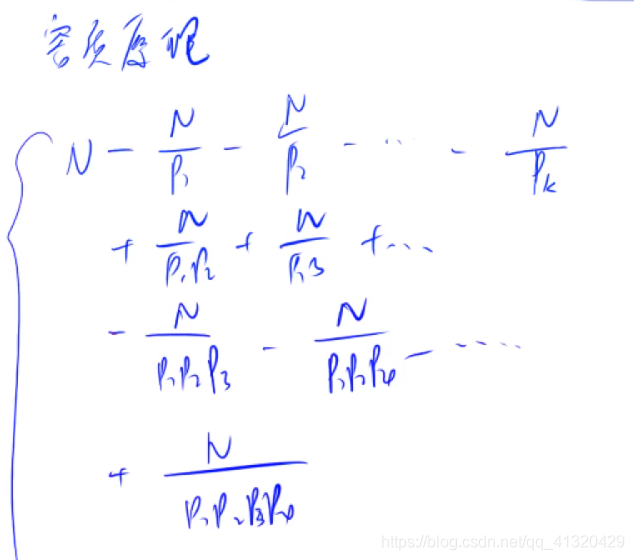 容斥原理
N - N/P₁ - N/P₂ - ... - N/Pₖ
+ N/P₁P₂ + N/P₁P₃ + ...
- N/P₁P₂P₃ - N/P₁P₂P₄ - ....
+ N/P₁P₂P₃P₄
https://blog.csdn.net/qq_41320429